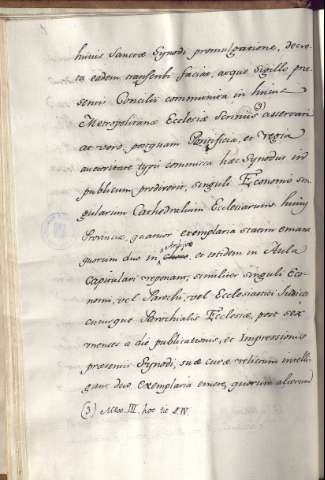 huius Sanctæ Synodi promulgatione, decre-
ta eadem transcribi faciat, atque sigillo præ-
sentis Concilii communita in huius
Metropolitanæ Ecclesiæ Scriniis (3) asservari
at vero postquam Pontificia, et regia
auctoritate typis commissa hæc Synodus in
publicum prodierit, singuli Economi sin-
gularum Cathedralium Ecclesiarum huius
Provinciæ, quatuor exemplaria statim emant
quorum duo in Choro, et totidem in Aula
Capitulari reponant, similiter singuli Eco-
nomi, vel Parochi, vel Ecclesiastici Judices
cuiuscumque Parochialis Ecclesiæ, post sex
menses a die publicationis, et Impressionis
præsentis Synodi, suæ curæ relictum intelli-
gant duo exemplaria emere, quorum alterum
(3) III. hoc